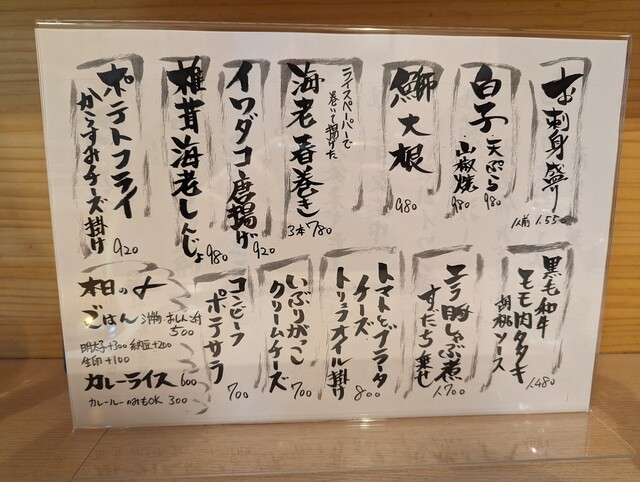 お刺身盛り
1人前 1,550
白子・天ぷら 980
・山椒焼 980
鰤大根
980
ライスペーパーで
巻いて揚げた
海老春巻き
3本 780
イワダコ唐揚げ
920
椎茸海老しんじょ
980
ポテトフライ
からすみチーズ掛け
920
黒毛和牛
モモ肉タタキ
胡桃ソース
1,480
すだち乗せ
1,700
トマトとブラータ
チーズ
トリュフオイル掛け
800
いぶりがっこ
クリームチーズ
700
コンビーフ
ポテサラ
700
本日の〆
ごはん
500
明太子+300 納豆+200
生卵+100
カレーライス 600
カレールーのみもOK 300